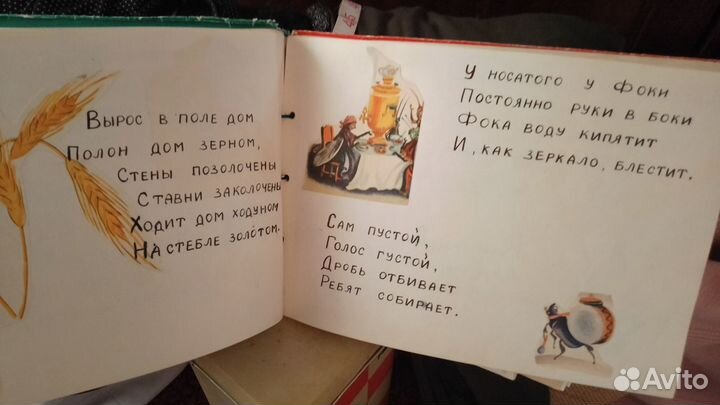 Вырос в поле дом
Полон дом зерном,
Стены позолочены
Ставни заколочены
Ходит дом ходуном
На стебле золотом.
У носатого у фоки
Постоянно руки в боки
Фока воду кипятит
И, как зеркало, блестит.
Сам пустой,
Голос густой,
Дробь отбивает
Ребят собирает.
Avito